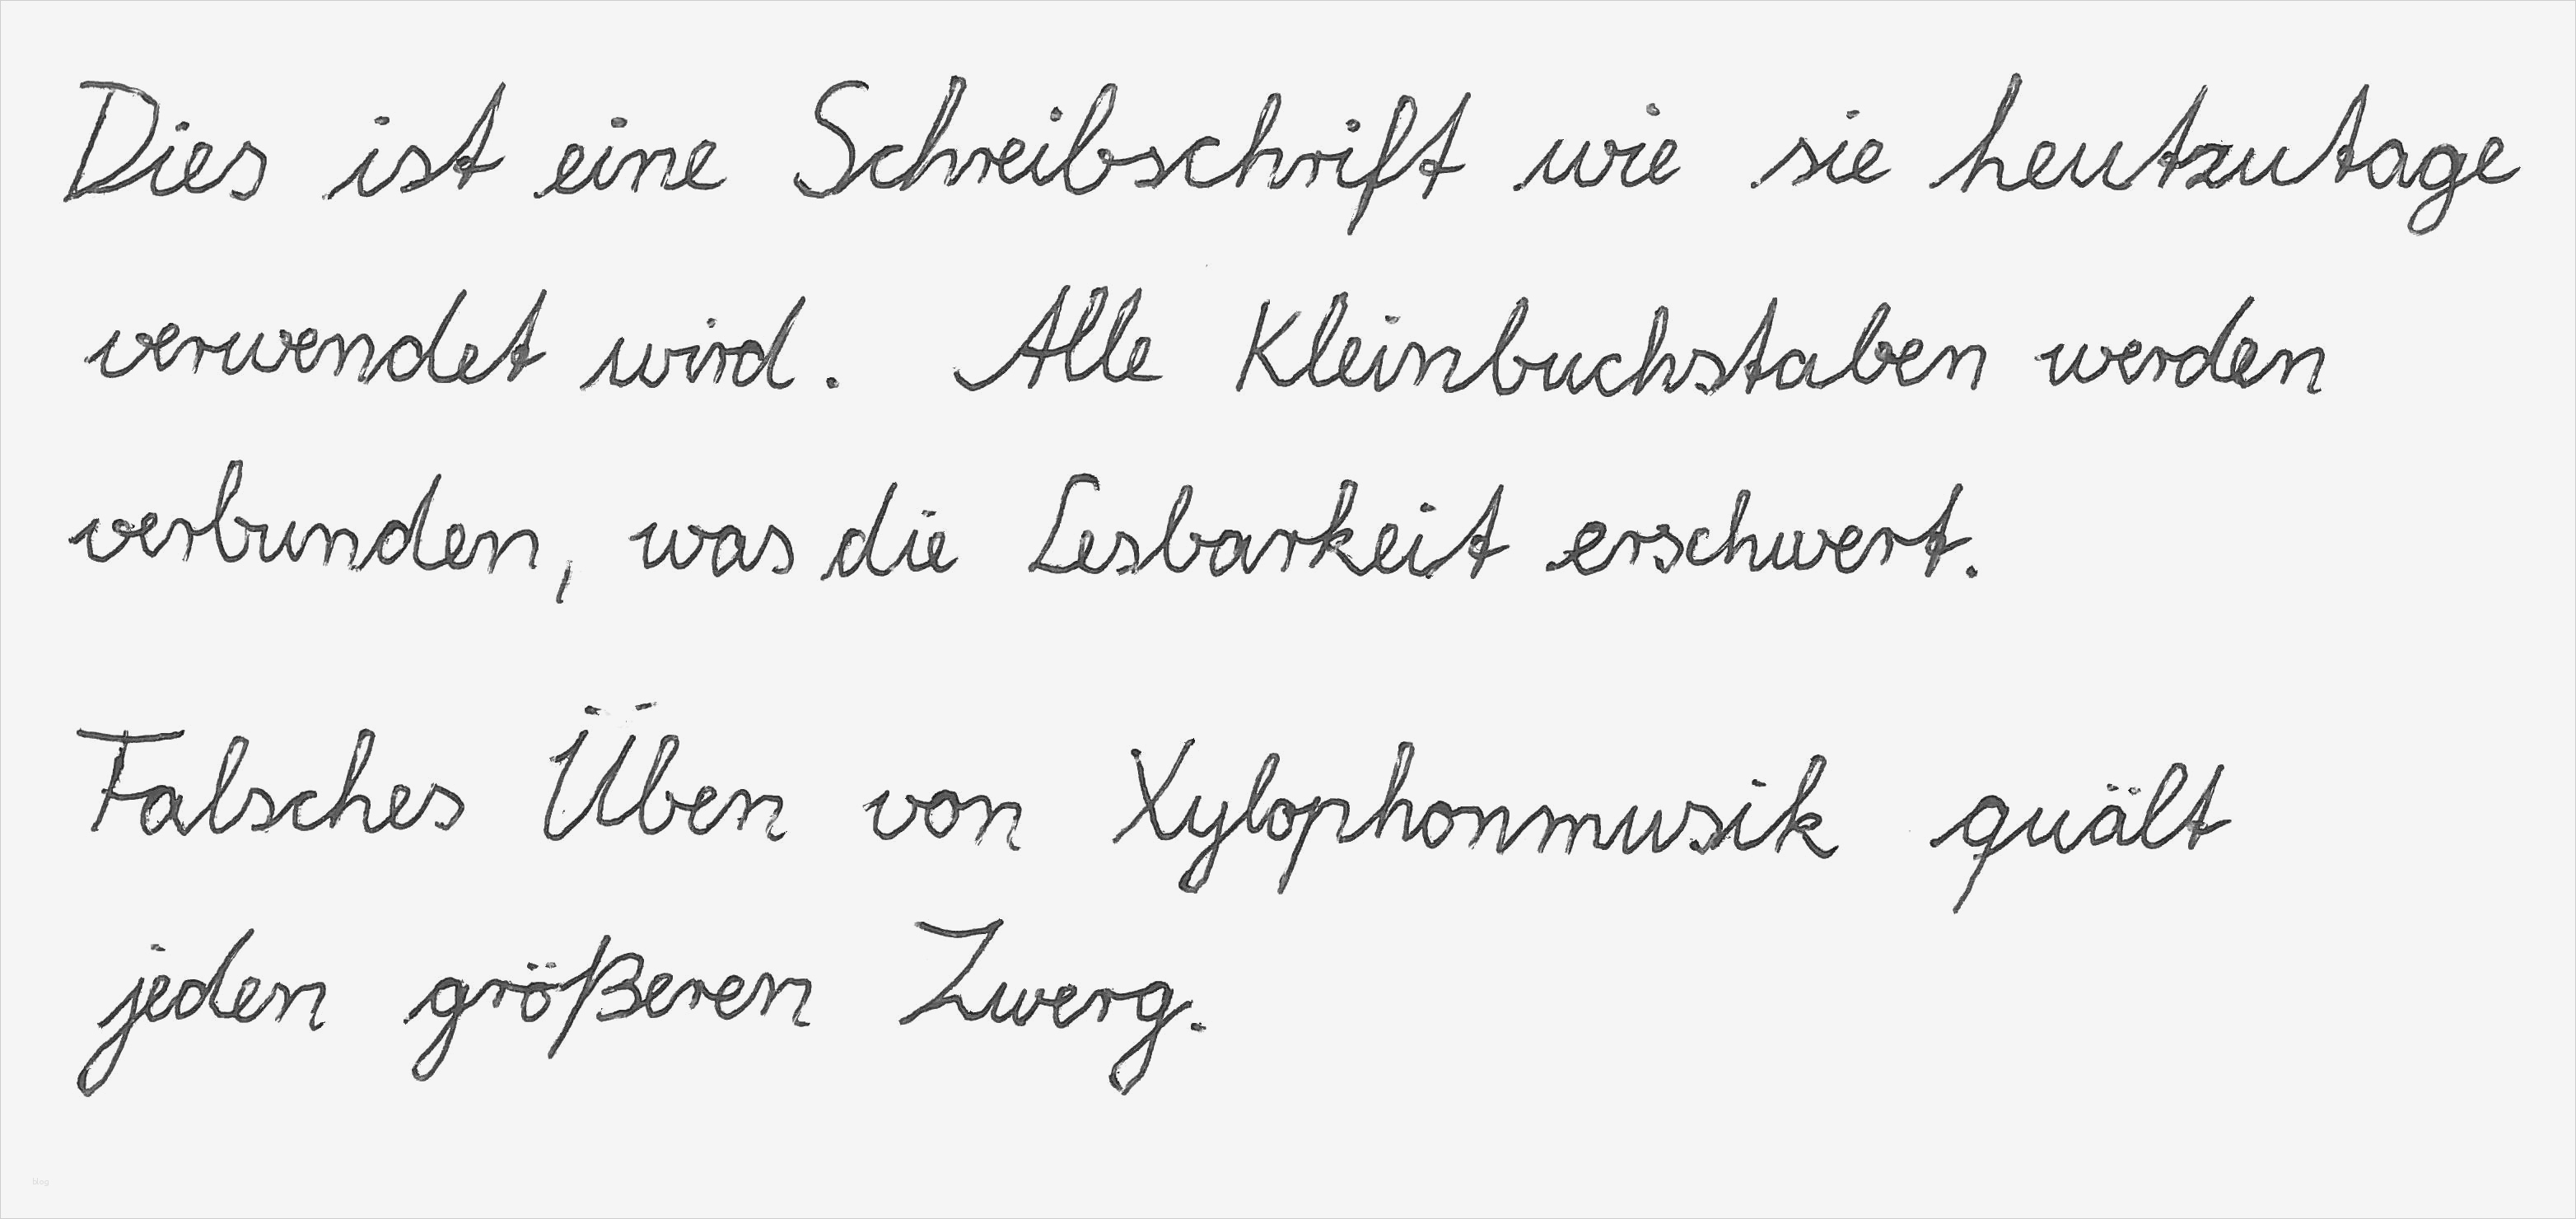 Dies ist eine Schreibschrift wie sie heutzutage
verwendet wird. Alle Kleinbuchstaben werden
verbunden, was die Lesbarkeit erschwert.
Falsches Üben von Xylophonmusik quält
jeden größeren Zwerg.
blog